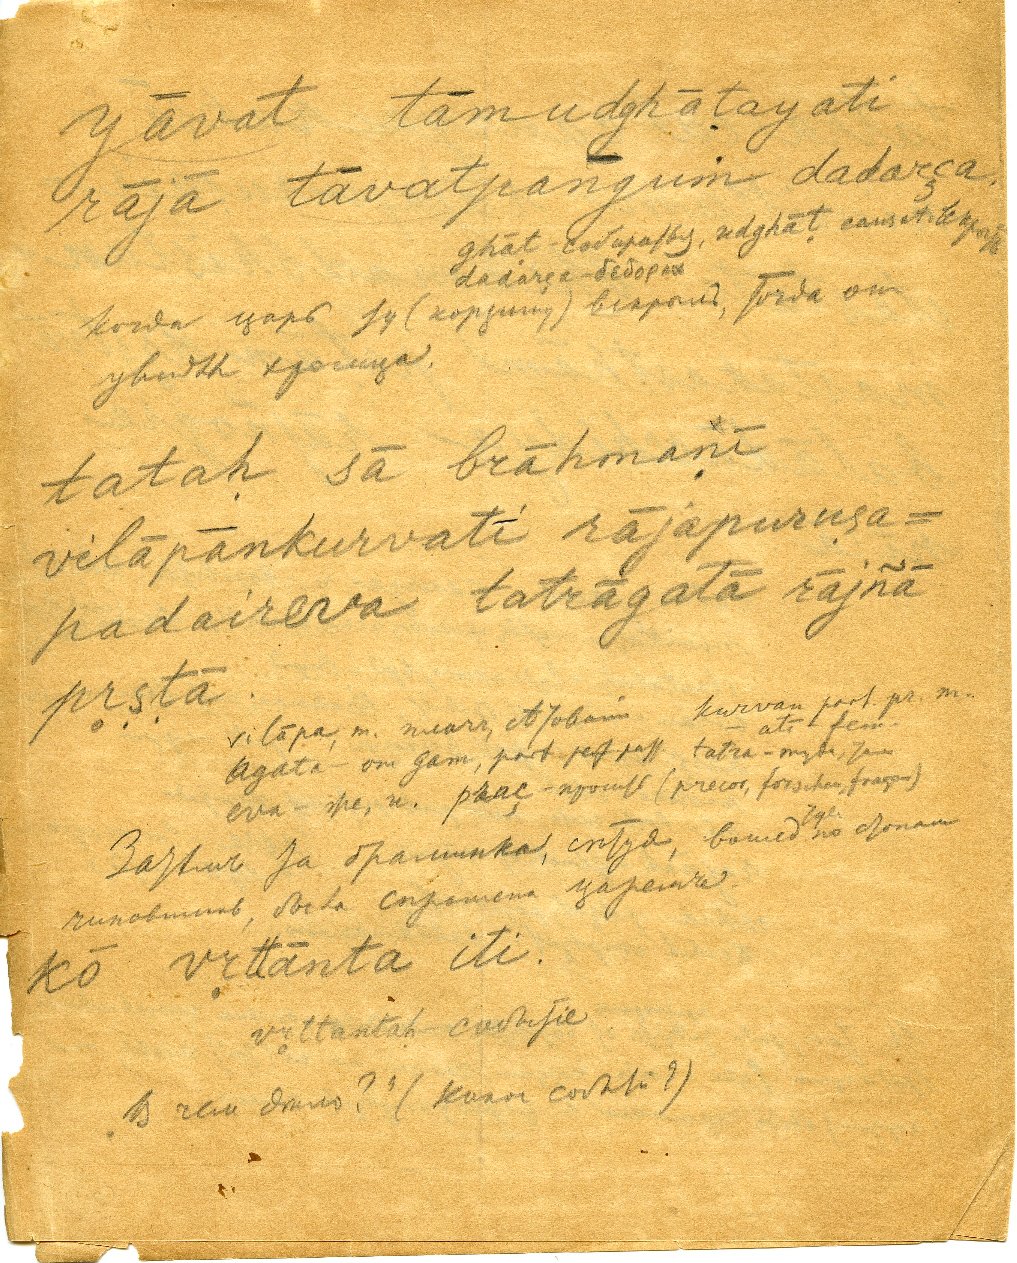 yāvat tāmudghāṭayati
rājā tāvatpangum dadarça.
ghāt - собирать, udghāṭ causat.
dadarça -
когда царь ту (корзину) вскрылъ, тогда он
увидѣл хромца.
tataḥ sā brāhmaṇī
vilāpānkurvatī rājapuruṣa=
padaireva tatrāgatā rājñā
pṛṣṭā.
vilāpa, m. kurvan part. pr. m.
āgata - от gam, part perf. pass tatra - там
- ati fem.
eva - же, и. praç - просить (precor, forschen, fragen)
Затѣм та браминка,
чиновников, была спрошена царемъ.
kō vṛttānta iti.
vṛttantaḥ - событіе
В чем дѣло? (Какое событіе?)